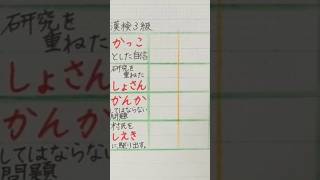 漢検3級
かっこ
とした自信
研究を
重ねた
しょさん
かんか
してはならない
問題
村民を
しえき
に駆り出す。
研究を
重ねた
しょさん
かんか
してはならない
問題